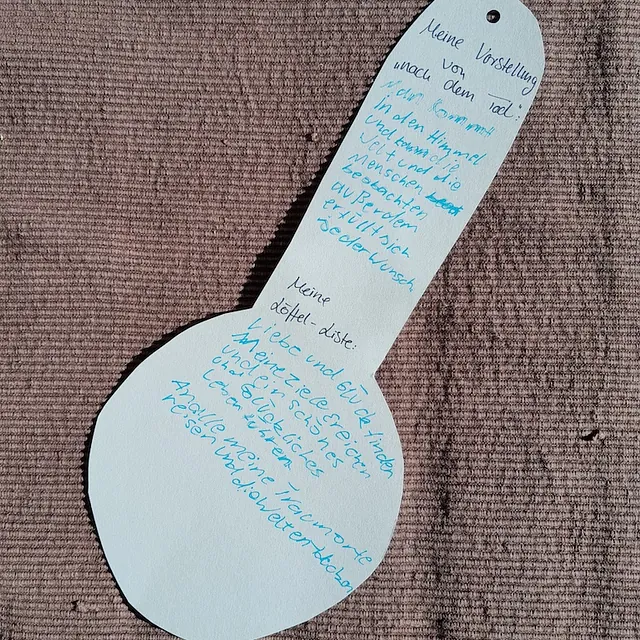 Meine Vorstellung
von
"nach dem Tod":
Man kommt
in den Himmel
und kann die
Welt und die
Menschen
beobachten
außerdem
erfüllt sich
jeder Wunsch
Meine
Löffel-Liste:
Liebe und Glück finden
Meine Ziele erreichen
und ein schönes
und Glückliches
Leben führen
An alle meine Traumorte
reisen und die Welt entdecken